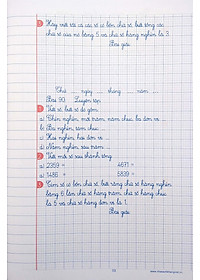 Hãy viết tất cả các số có bốn chữ số, biết tổng các
chữ số của nó bằng 5 và chữ số hàng nghìn là 3.
Bài giải
Thứ ... ngày ... tháng ... năm ...
Bài 90 Luyện tập
1 Viết số, biết số đó gồm:
a) Chín nghìn, một trăm, năm chục, ba đơn vị
b) Ba nghìn, tám chục
c) Hai nghìn, hai đơn vị
d) Năm nghìn, sáu trăm
2 Viết mỗi số sau thành tổng
a) 2359 = 4671 =
b) 1486 = 5839 =
3 Tìm số có bốn chữ số, biết rằng chữ số hàng nghìn
bằng 6, làm chữ số hàng trăm, chữ số hàng chục
là 5 và chữ số hàng đơn vị là 1.
Bài giải